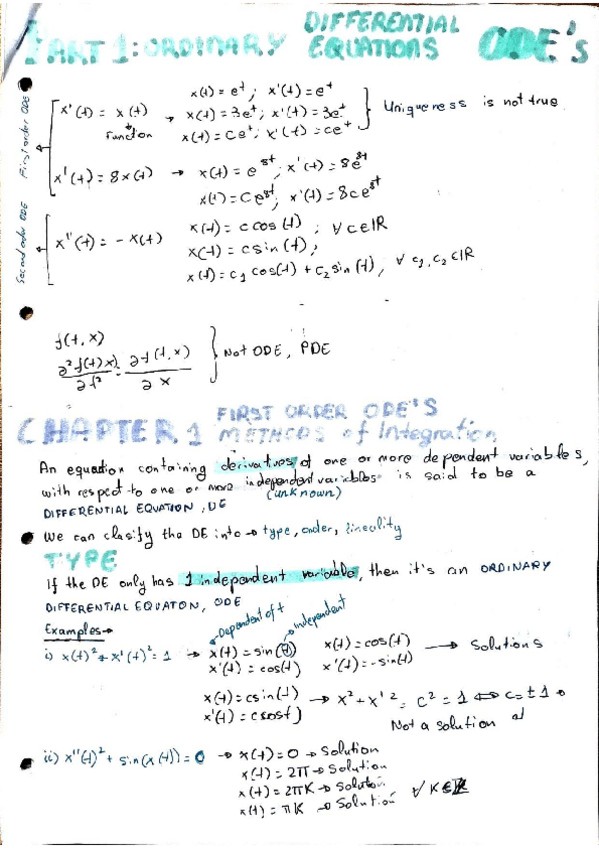 PART 1: ORDINARY DIFFERENTIAL EQUATIONS ODE's
First order ODE
x'(t) = x(t)
Function
x(t) = e^t ; x'(t) = e^t
→ x(t) = 3e^t ; x'(t) = 3e^t
x(t) = Ce^t ; x'(t) = ce^t
Uniqueness is not true
x'(t) = 8x(t) → x(t) = e^8t ; x'(t) = 8e^8t
x(t) = Ce^8t ; x'(t) = 8ce^8t
Second order ODE
x''(t) = - x(t)
x(t) = c cos(t) ; ∀ c∈IR
x(t) = c sin(t) ;
x(t) = c1 cos(t) + c2 sin(t), ∀ c1, c2 ∈IR
f(t, x)
Not ODE, PDE
CHAPTER 1 FIRST ORDER ODE'S
METHODS of Integration
An equation containing derivatives of one or more dependent variables,
with respect to one or more independent variables is said to be a
(unknown)
DIFFERENTIAL EQUATION, DE
We can clasify the DE into → type, order, lineality
TYPE
If the DE only has 1 independent variable, then it's an ORDINARY
DIFFERENTIAL EQUATON, ODE
Examples→
Dependent of t
independent
i) x(t)² + x'(t)² = 1 → x(t) = sin(t) x(t) = cos(t) → Solutions
x'(t) = cos(t) x'(t) = -sin(t)
x(t) = c sin(t) → x² + x'² = c² = 1 ⇔ c = ± 1
x'(t) = c cos t)
Not a solution
ii) x''(t)² + sin(x(t)) = 0 → x(t) = 0 → Solution
x(t) = 2π → Solution
x(t) = 2πK → Solution
x(t) = πK → Solution ∀ K∈